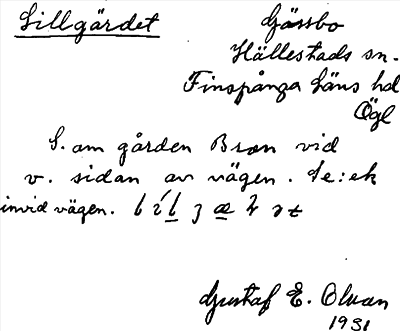 Lillgärdet
Gässbo
Hällestads sn.
Finspånga läns hd
Ögl
S. om gården Bron vid
v. sidan av vägen. Le:ek
invid vägen.
Gustaf E. Olsson
1931